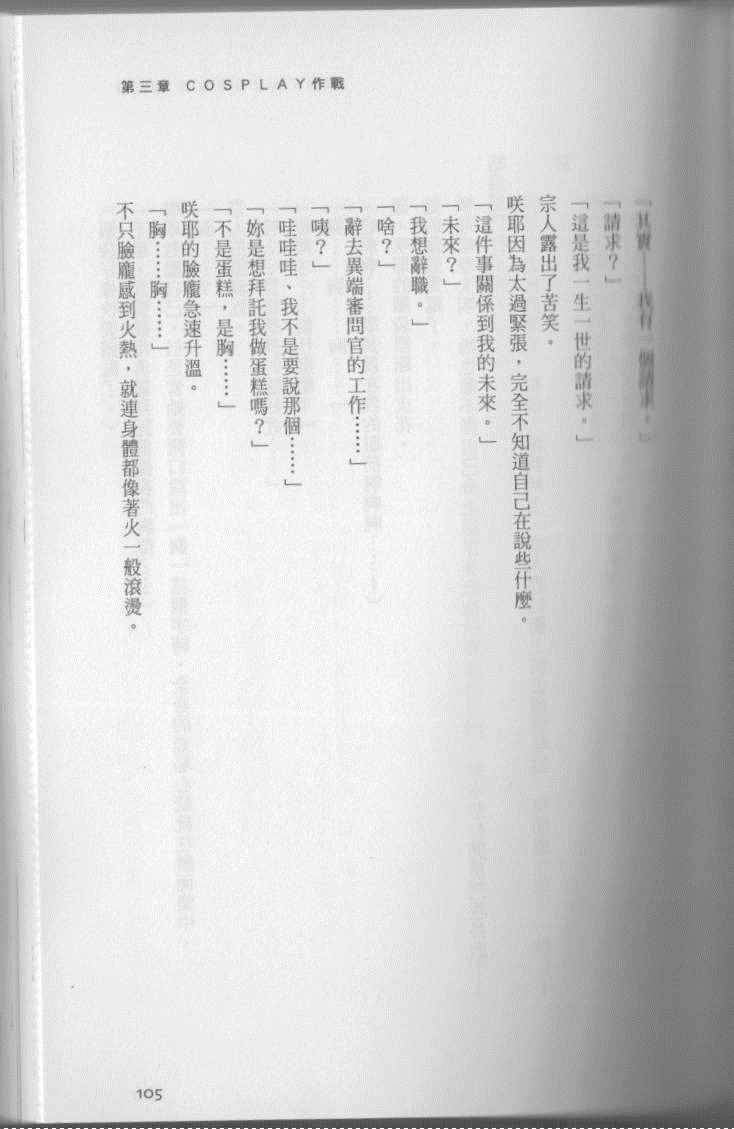 第三章 COSPLAY作戰
「其實……我有一個請求。」
「請求？」
「這是我一生一世的請求。」
宗人露出了苦笑。
咲耶因為太過緊張，完全不知道自己在說些什麼。
「這件事關係到我的未來。」
「未來？」
「我想辭職。」
「啥？」
「辭去異端審問官的工作……」
「咦？」
「哇哇哇、我不是要說那個……」
「妳是想拜託我做蛋糕嗎？」
「不是蛋糕，是胸……」
咲耶的臉龐急速升溫。
「胸……胸……」
不只臉龐感到火熱，就連身體都像著火一般滾燙。
105